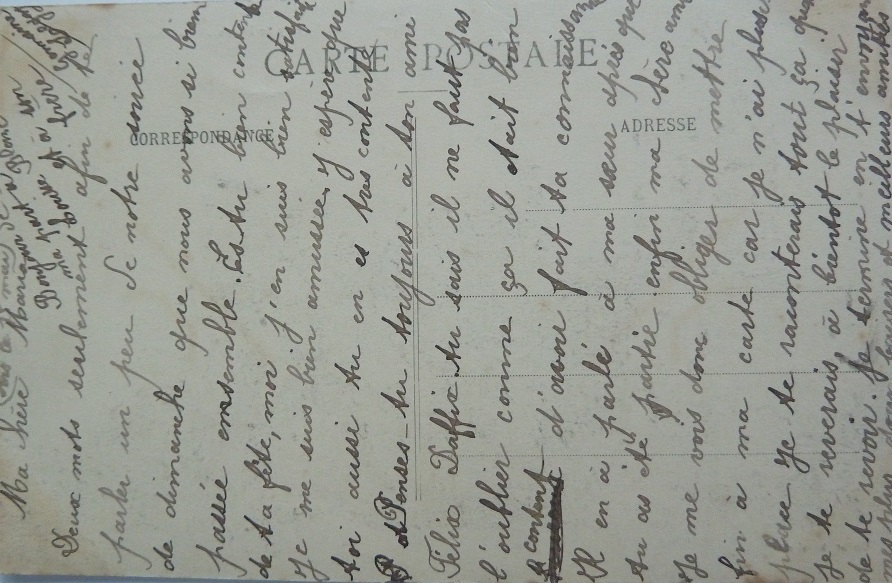 Ma chère Maria
Bonjour de
ma part à
Louise Blanc
et à son
frère
Germaine
Deux mots seulement afin de te
parler un peu de notre soirée
de dimanche que nous avons si bien
passée emsemble. Es-tu bien contente
de ta fête, moi j'en suis bien satisfaite
Je me suis bien amussée, j'espère que
toi aussi tu en es tres contente
Penses-tu toujours à ton ami
Félix Daffix. tu sais il ne faut pas
l'oublier comme ça il était bien
content d'avoir fait ta connaissance
Il en à parlé à ma sœur après que
tu as été partie. enfin ma chère amie
Je me vois donc obliger de mettre
fin à ma carte car je n'ai plus de
place Je te raconterais tout ça quand
je te reverais, à bientot le plaisir
de te revoir. Je termine en t'envoyant
mes plus doux baisers et meilleurs amitiés
CORRESPONDANCE
CARTE POSTALE
ADRESSE